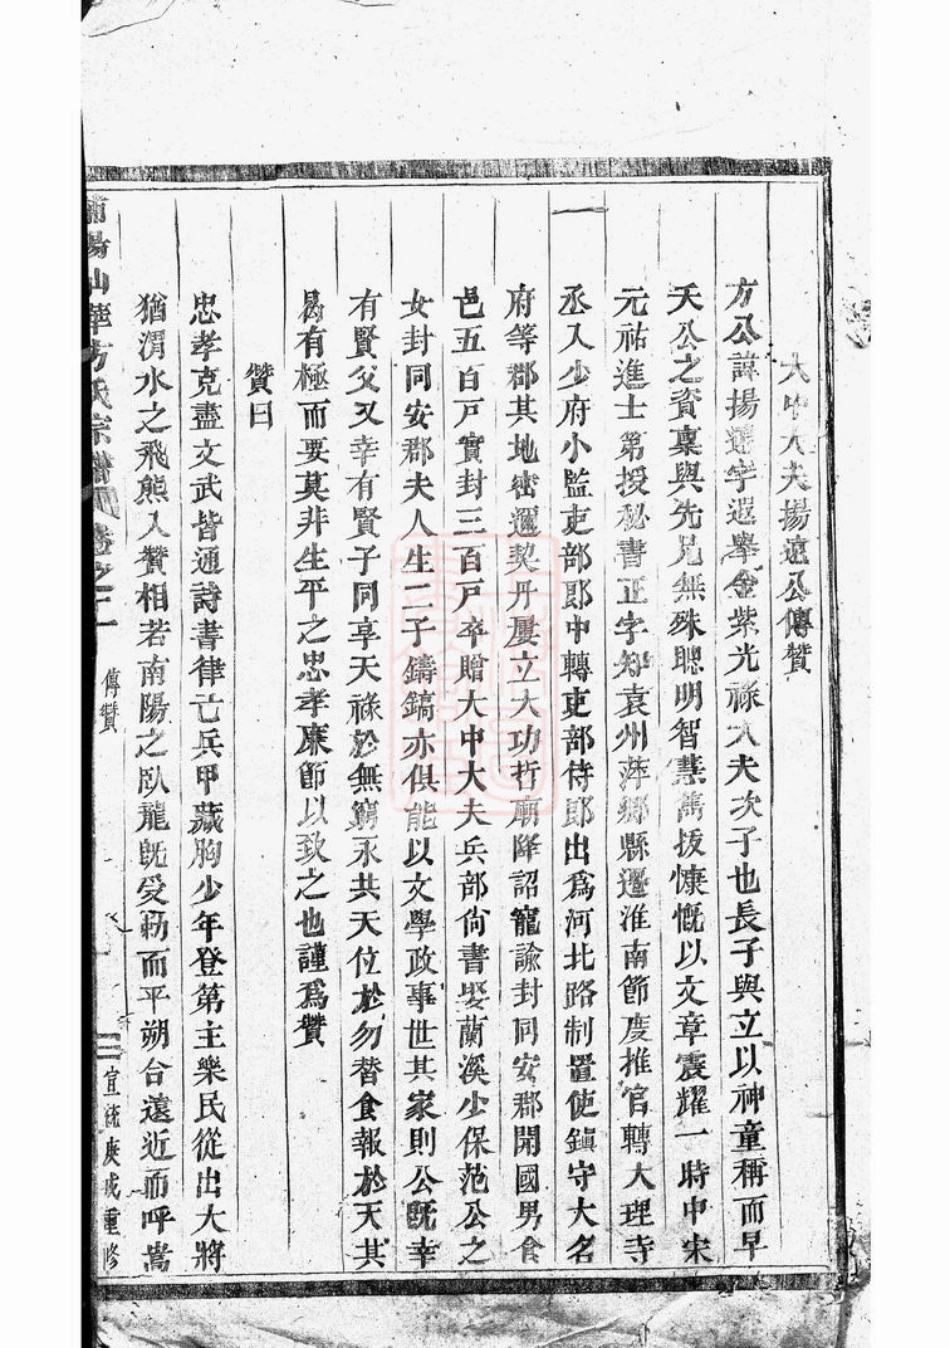 大中大夫揚遠公傳贊
方公諱揚遠字遐舉金紫光祿大夫次子也長子與立以神童稱而早
夭公之資稟與先兄無殊聰明智慧雋拔慷慨以文章震耀一時中宋
元祐進士第授秘書正字知袁州萍鄉縣遷淮南節度推官轉大理寺
丞入少府小監吏部郎中轉吏部侍郎出爲河北路制置使鎮守大名
府等郡其地密邇契丹屢立大功哲廟降詔寵諭封同安郡開國男食
邑五百戸實封三百戸卒贈大中大夫兵部尙書娶蘭溪少保范公之
女封同安郡夫人生二子鑄鎬亦俱能以文學政事世其家則公旣幸
有賢父又幸有賢子同享天祿於無窮永共天位於勿替食報於天其
曷有極而要莫非生平之忠孝廉節以致之也謹爲贊
贊曰
忠孝克盡文武皆通詩書律亡兵甲藏胸少年登第主樂民從出大將
猶渭水之飛熊入贊相若南陽之臥龍旣受勅而平朔合遠近而呼嵩
莆陽山華方氏宗譜 卷之十一 傳贊 二 宣統庚戌重修